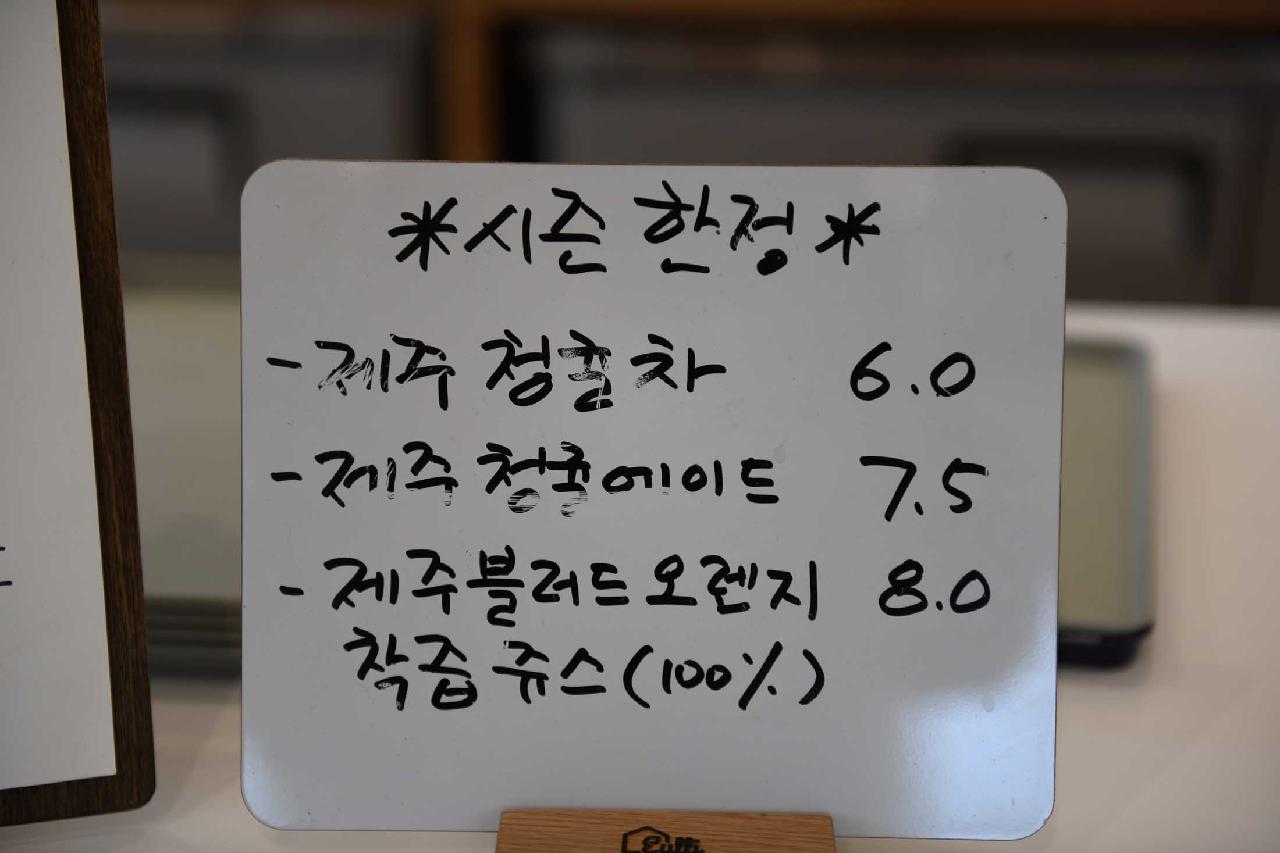 *시즌 한정*
- 제주 청귤차 6.0
- 제주 청귤에이드 7.5
- 제주블러드오렌지 8.0
착즙 쥬스(100%)